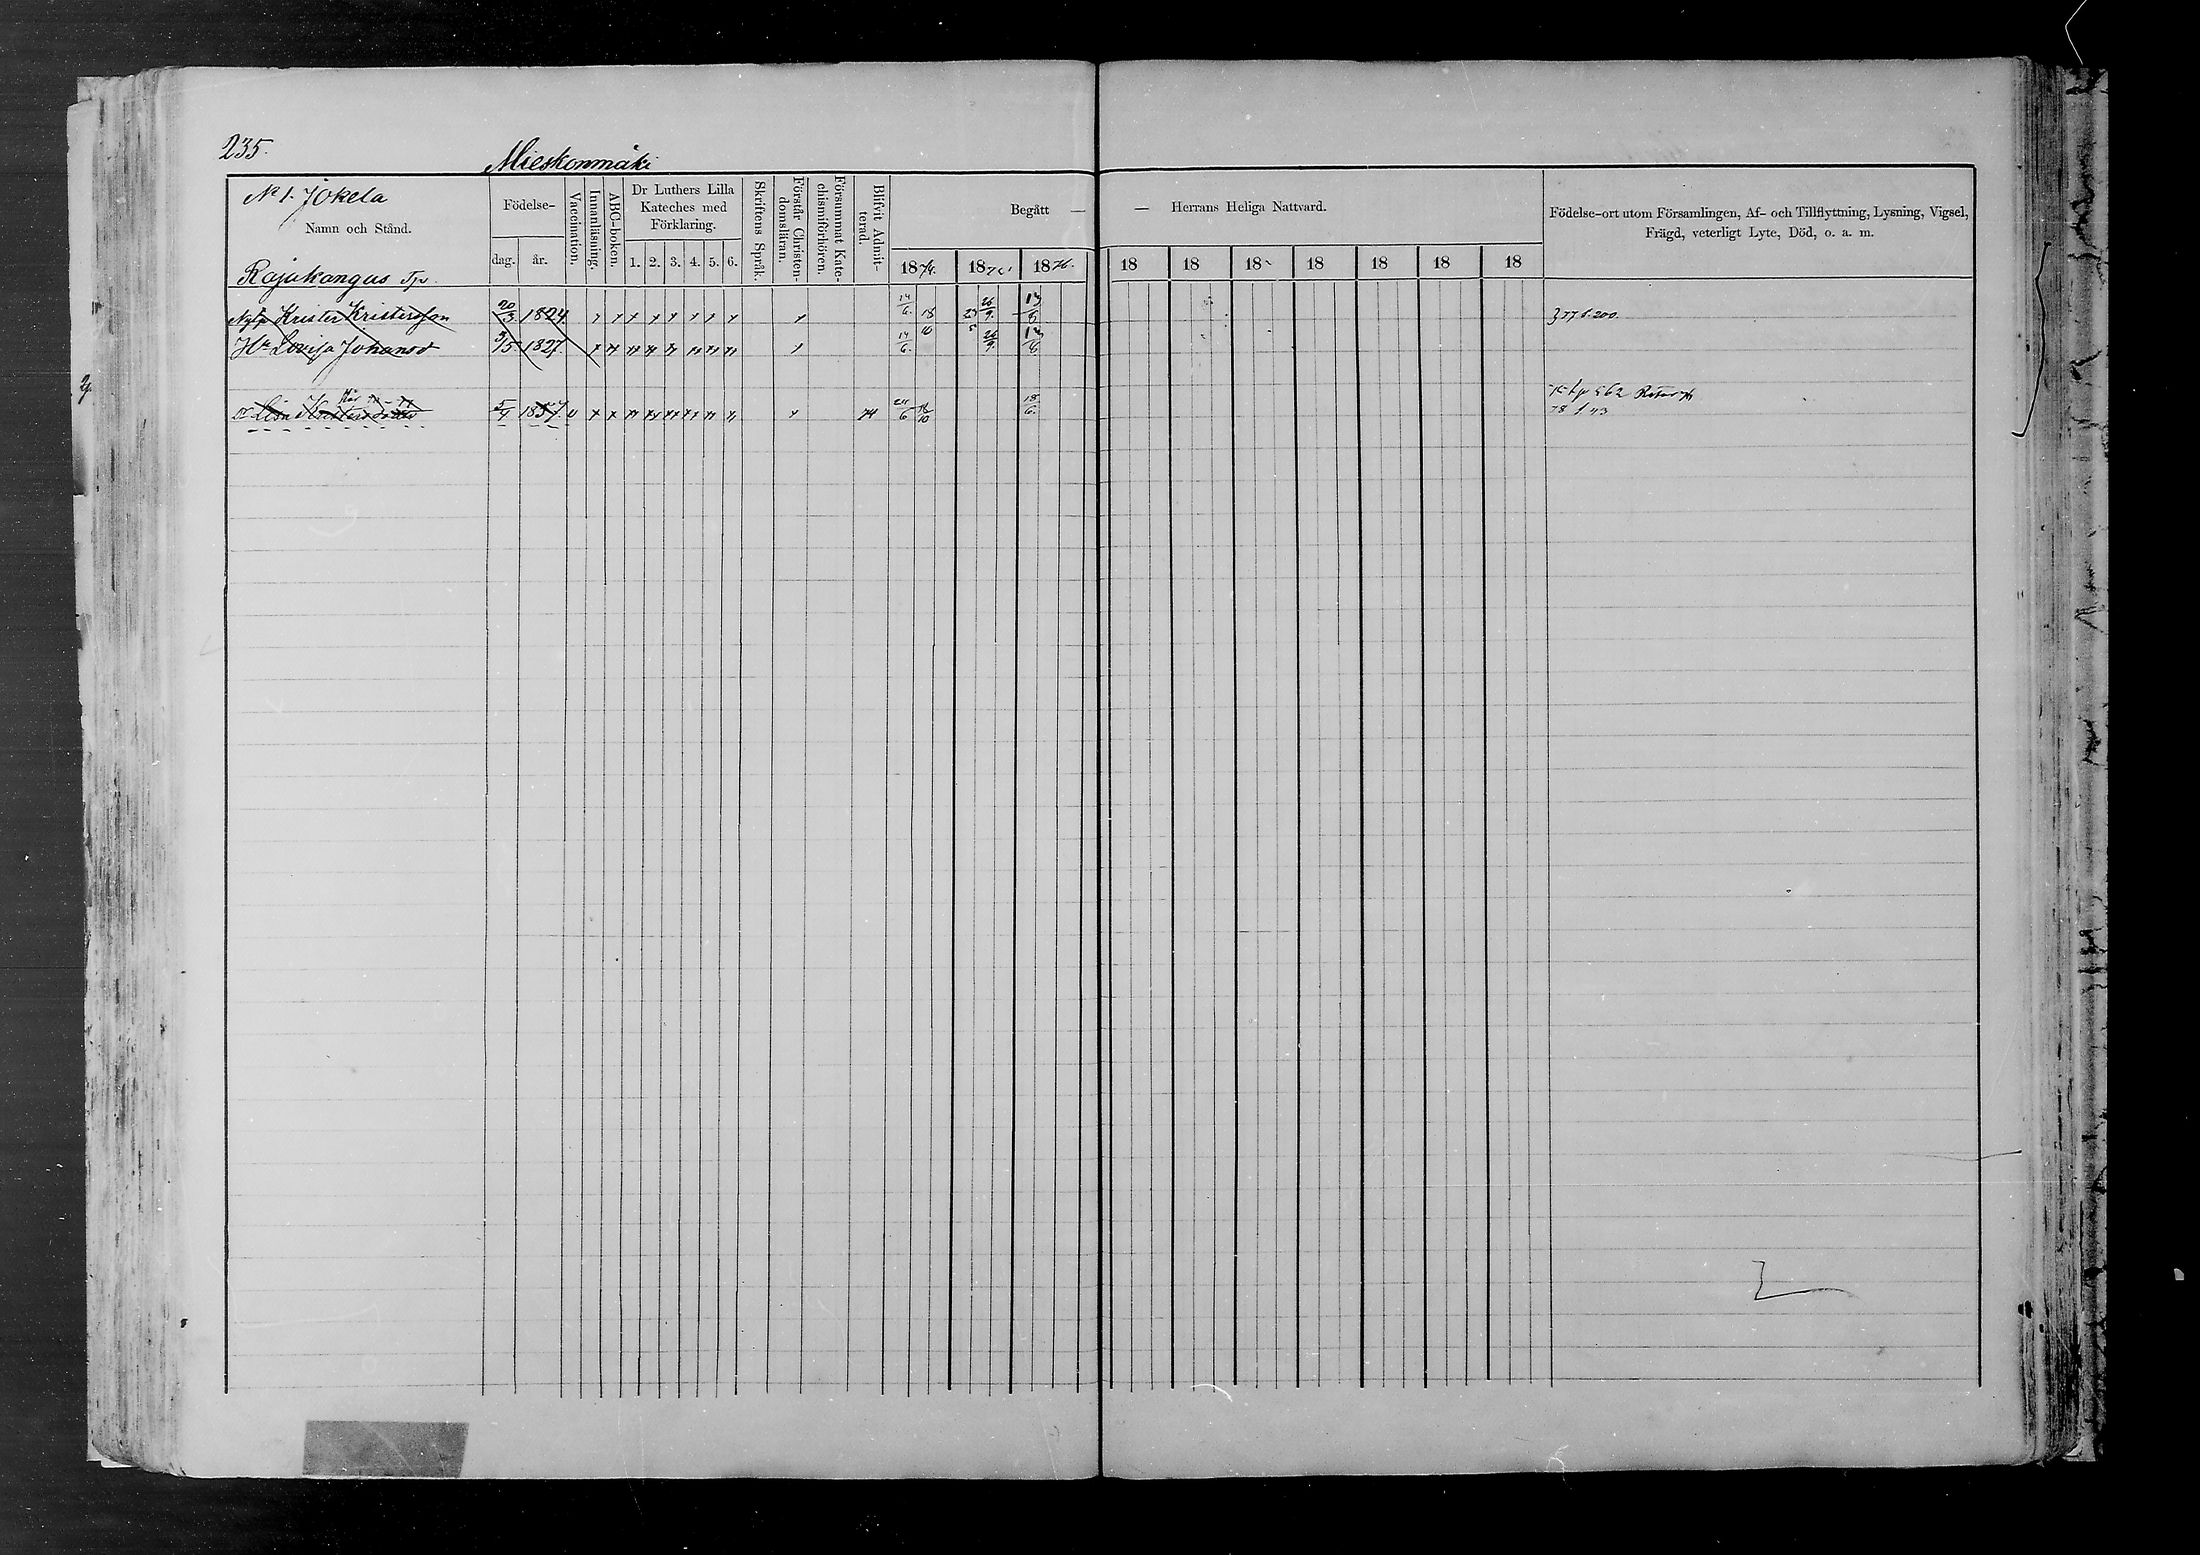 235.
Mieskonmäki
No 1. Jokela
Namn och Stånd.
Födelse-
dag. år.
Vaccination.
Innanläsning.
ABC-boken.
Dr Luthers Lilla
Kateches med
Förklaring.
1. 2. 3. 4. 5. 6.
Skriftens Språk.
Förstår Christen-
domsläran.
Försummat Kate-
chismiförhören.
Blifvit Admit-
terad.
Begått — — Herrans Heliga Nattvard.
1874. 187 1876. 18 18 18 18 18 18 18
Födelse-ort utom Församlingen, Af- och Tillflyttning, Lysning, Vigsel,
Frägd, veterligt Lyte, Död, o. a. m.
Rajukangus Tp.
Krister Kristersson 20/3 1824. 14/6 18 26/9 13/8
Hu Lovisa Johansd 9/5 1827. 14/6 26/9 13/8
Lisa Kristersdotter 5/4 1857. v 74 18/10 18/6